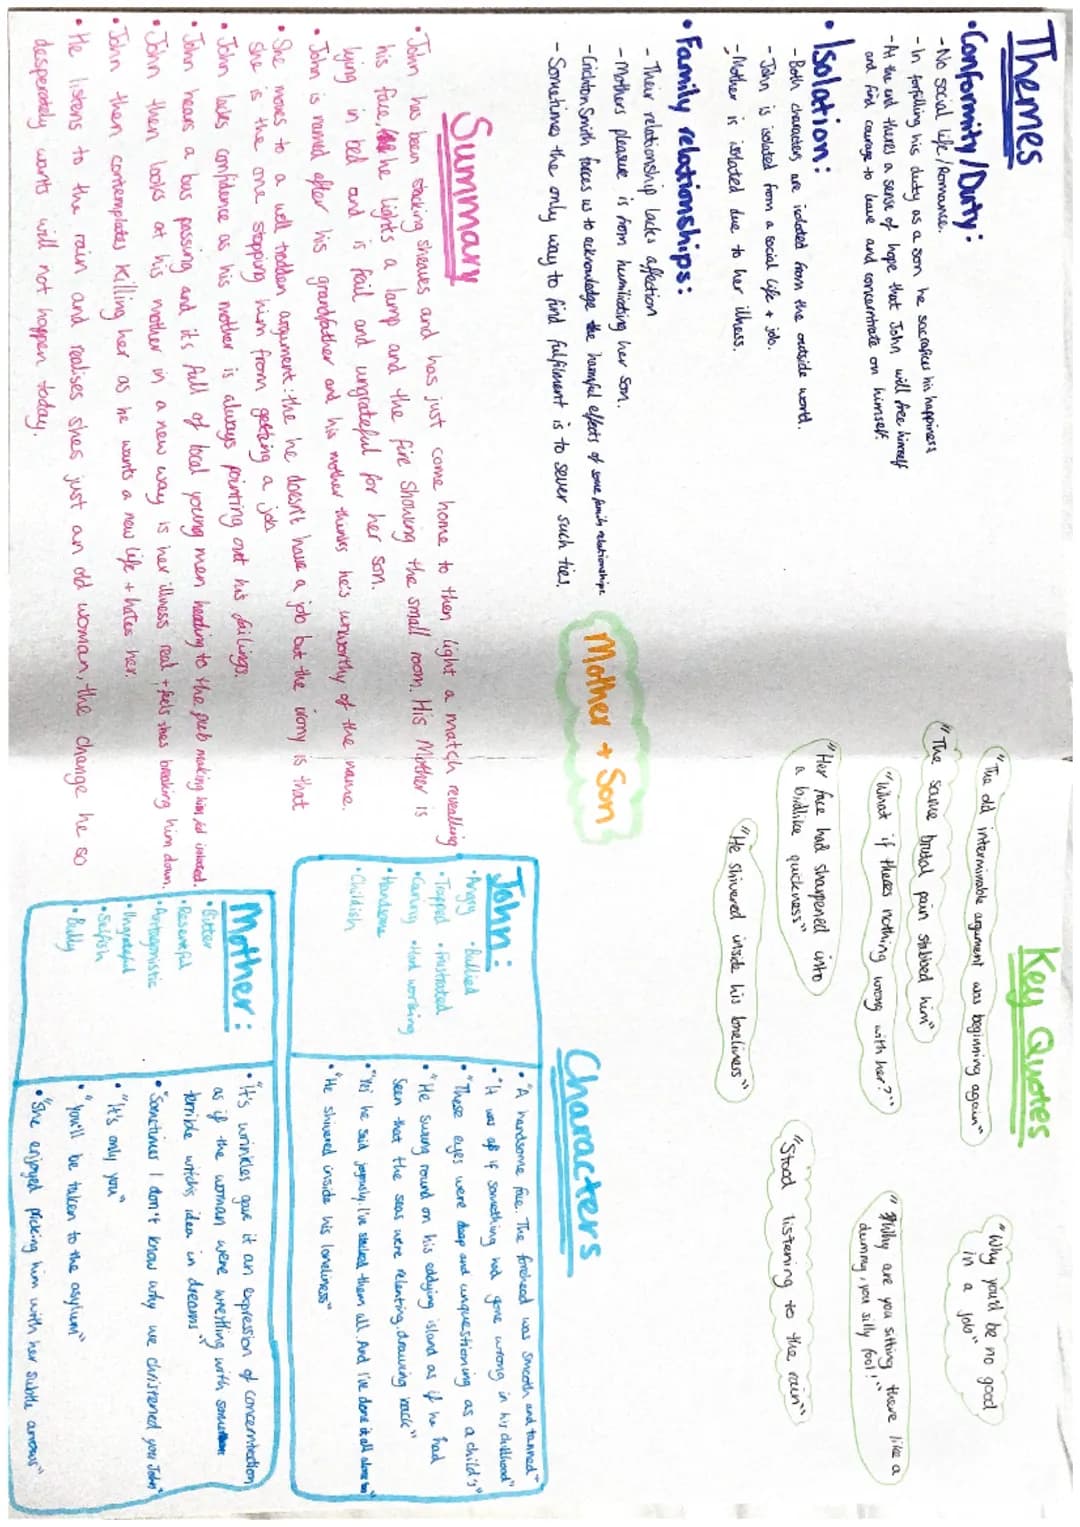 Themes
• Conformity/Duty:
- No social life/Romance.
- In forfilling his duty as a son he sacrafices his happiness
- At the end theres a sense of hope that John will free himself
and find courage to leave and concentrate on himself.
• Isolation:
- Both characters are isolated from the outside world.
- John is isolated from a social life + job.
- Mother is isolated due to her illness.
• Family relationships:
- Their relationship lacks affection
- Mothers pleasure is from humiliating her son.
- Crichton Smith forces us to acknowledge the harmful effects of some family relationships
- Sometimes the only way to find fulfilment is to sever such ties.
Mother + Son
Key Quotes
"The old interminable argument was beginning again"
"Why you'd be no good
in a job"
"The same brutal pain stabbed him"
"What if theres nothing wrong with her?"
"Why are you sitting there like a
dummy, you silly fool!"
"Her face had sharpened into
a birdlike quickness"
"Stood listening to the rain"
"He shivered inside his loneliness"
Summary
• John has been stacking sheaves and has just come home to then light a match revealling
his face, he lights a lamp and the fire showing the small room. His Mother is
lying in bed and is frail and ungrateful for her son.
• John is named after his grandfather and his mother thinks he's unworthy of the name.
• She moves to a well trodden argument: the he doesn't have a job but the irony is that
she is the one stopping him from getting a job
• John lacks confidence as his mother is always pointing out his failings.
• John hears a bus passing and it's full of local young men heading to the pub making him feel isolated.
• John then looks at his mother in a new way is her illness real + feels shes breaking him down.
• John then contemplates killing her as he wants a new life + hates her.
• He listens to the rain and realises shes just an old woman, the change he so
desperately wants will not happen today.
Characters
John:
• Angry • Bullied
• Trapped • Frustrated
• Canny • Hard working
• Handsome
• Childish
• "A handsome face. The forehead was smooth and tanned"
• "It was as if something had gone wrong in his childhood"
• "These eyes were deep and unquestioning as a child's"
• "He swung round on his eddying island as if he had
seen that the seas were relenting, drawing back"
• "Yes' he said joyously, I've stacked them all. And I've done it all alone too"
• "He shivered inside his loneliness"
Mother:
• Bitter
• Resentful
• Antagonistic
• Ungrateful
• Selfish
• Bully
• "It's wrinkles gave it an expression of concentration
as if the woman were wrestling with some
terrible witch's idea in dreams"
• "Sometimes I don't know why we christened you John"
• "It's only you"
• "You'll be taken to the asylum"
• "She enjoyed pricking him with her subtle arrows"